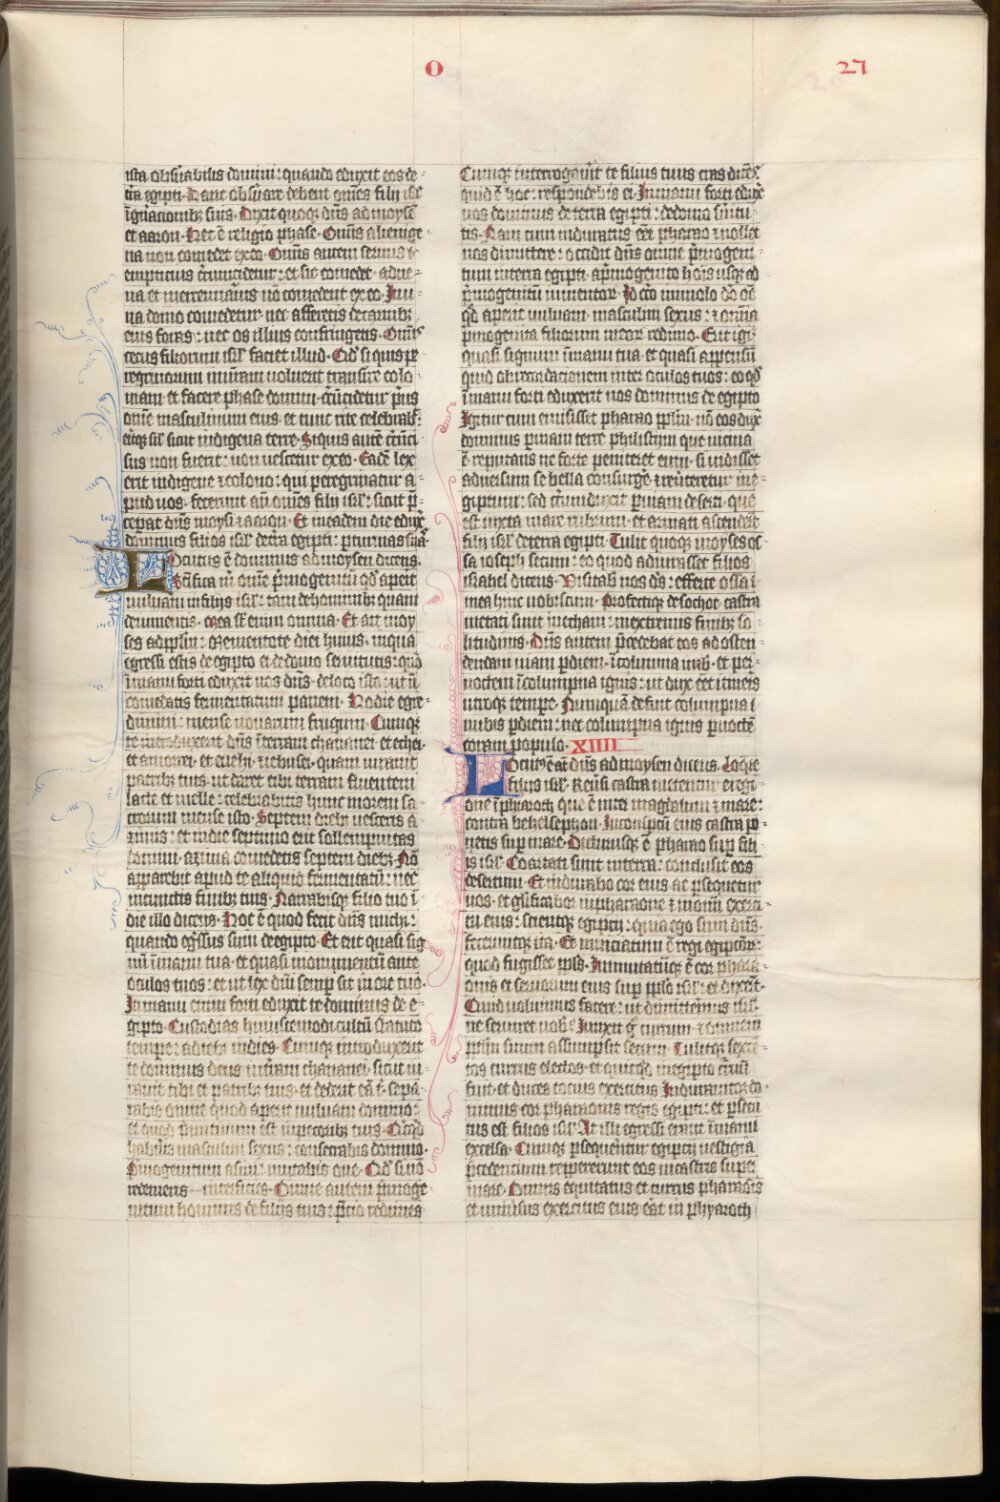 O
27
ista obs̄uabilis domini: quando eduxit eos de
t̄ra egipti. Hanc obs̄uare debent om̄es filii isr̄l
ī gn̄ationibꝫ suis. Dixit quoqꝫ dn̄s ad moysē
et aaron. Hec ē religio phase. Om̄is alienige
na non comedet ex eo. Om̄is autem seruus
empticius c̄cūcidetur: et sic comedet. adue
na et mercennarius nō comedent ex eo. In u
na domo comedetur. nec afferetis de carnibꝫ
eius foras: nec os illius confringetis. Om̄is
cetus filiorum isr̄l faciet illud. Qd̓ si quis pe
regrinorum in ur̄am uoluerit transire colo
niam et facere phase domini. c̄cūcidetur p̓us
om̄e masculinum eius. et tunc rite celebrabit:
eritqꝫ sil̓ sicut indigena terre. Si quis autē c̄cūci
sus non fuerit: non uescetur ex eo. Eadē lex
erit indigene ⁊ colono: qui peregrinatur a
pud uos. fecerunt aūt om̄es filii isr̄l: sicut p̄
ceperat dn̄s moysi ⁊ aaron. Et in eadem die eduxit
dominus filios isr̄l de t̄ra egipti: p turmas suas
Locutus ē dominus ad moysen dicens.
Sc̄ifica m̄ om̄e p̓mogenitū qd̓ aperit
uuluam in filiis isr̄l: tam de hominibꝫ quam
de iumentis. mea sūt enim omnia. Et ait moy
ses ad pplm̄: Mementote diei huius. in qua
egressi estis de egipto et de domo seruitutis: qm̄
ī manu forti eduxit uos dn̄s. de loco isto: ut n̄
comedatis fermentatum panem. Hodie egre
dimini: mense nouarum frugum. Cumqꝫ
te introduxerit dn̄s ī terram chananei. et ethei.
et amorrei. et euei. et iebusei. quam iurauit
patribꝫ tuis. ut daret tibi terram fluentem
lacte et melle: celebrabitis hunc morem sa
crorum mense isto. Septem diebꝫ uesceris a
zimis: et in die septimo erit sollempnitas
domini. azima comedetis septem diebꝫ. Nō
apparebit apud te aliquid fermentatū: nec
in cunctis finibꝫ tuis. Narrabisqꝫ filio tuo ī
die illo dicens. Hoc ē quod fecit dn̄s michi:
quando eg̓ssus sum de egipto. Et erit quasi sig
nū ī manu tua. et quasi monumentū ante
oculos tuos: et ut lex dn̄i semp̄ sit in ore tuo.
In manu enim forti eduxit te dominus de e
gipto. Custodias huiuscemodi cultū statuto
tempore: a diebꝫ in dies. Cumqꝫ introduxerit
te dominus deus in t̄ram chananei. sicut iu
rauit tibi et patribꝫ tuis. et dederit eā t̄. sepa
rabis omne quod aperit uuluam domino:
et quod primitiuum est in pecoribꝫ tuis. Quicqd̓
habueris masculini sexus: consecrabis domino.
P̓mogenitum asini: mutabis oue. Qd̓ si nō
redemeris interficies. Omne autem p̓moge
nitum hominis de filiis tuis: p̄cio redimes
Cumqꝫ interrogauit te filius tuus cras dicēs.
quid ē hoc: respondebis ei. In manu forti eduxit
nos dominus de terra egipti: de domo s̄uitu
tis. Nam cum induratus eēt pharao ⁊ nollet
nos dimittere: occidit dn̄s omne p̓mogeni
tum in terra egipti. a p̓mogenito hoīs usqꝫ ad
p̓mogenitū iumentorꝫ. Id c̄co immolo dn̄o om̄e
qd̓ aperit uuluam. masculini sexus: ⁊ omnia
p̓mogenita filiorum meorꝫ redimo. Erit igit̓
quasi signum ī manu tua. et quasi appensū
quid ob recordacionem inter oculos tuos: eo qd̓
ī manu forti eduxerit nos dominus de egipto
Igitur cum emisisset pharao pplm̄: nō eos duxit
dominus p uiam terre philistiim que uicina
ē. reputans ne forte peniteret eum. si uidisset
aduersum se bella consurgē. ⁊ reuerteretur in e
giptum: sed c̄cumduxit p uiam deserti. que
est iuxta mare rubrum. et armati ascenderūt
filii isr̄l de terra egipti. Tulit quoqꝫ moyses os
sa ioseph secum: eo quod adiurasset filios
israhel dicens. Visitabit uos d̄s: efferte ossa
mea hinc uobiscum. Profectiqꝫ de sochot castra
metati sunt in etham: in extremis finibꝫ so
litudinis. Dn̄s autem p̄cedebat eos ad osten
dendam uiam p diem. ī columna nub̓. et per
noctem ī columpna ignis: ut dux eēt itineris
utroqꝫ tempore. Numquā defuit columpna
nubis p diem: nec columpna ignis p noctē
coram populo. XIIII
Locutꝰ ē aūt dn̄s ad moysen dicens. Loqr̄e
filiis isr̄l. Reūsi castra metentur e regi
one ī phiaroth. que ē inter magdalum ⁊ mare:
contra behelsephon. In conspctū eius castra po
netis sup̄ mare. Dicturusqꝫ ē pharao sup̄ fili
is isr̄l. Coartati sunt in terra: conclusit eos
desertum. Et indurabo cor eius ac p̄sequetur
uos. et gl̓ificabor in pharaone ⁊ in om̄i exerci
tu eius: scientqꝫ egiptii: quia ego sum dn̄s.
feceruntqꝫ ita. Et nunciatum ē regi egiptiorꝫ:
quod fugisset ppl̓s. Immutatūqꝫ ē cor phara
onis et seruorum eius sup̄ ppl̓o isr̄l: et dixer̄t.
Quid uoluimus facere: ut dimitteremus isr̄l.
ne seruiret nob̓. Iunxit g̓ currum. ⁊ omnem
pplm̄ suum assumpsit secum. Tulitqꝫ sexcen
tos currus electos. et quicqd̓ in egipto curruū
fuit. et duces tocius exercitus. Indurauitqꝫ do
minus cor pharaonis regis egipti: et p̄secu
tus est filios isr̄l. At illi egressi erant ī manu
excelsa. Cumqꝫ p̄sequerentur egiptii uestigia
p̄cedentium reppererunt eos in castris super
mare. Omnis equitatus et currus pharaonis
et uniūsus exercitus eius erāt in phyaroth